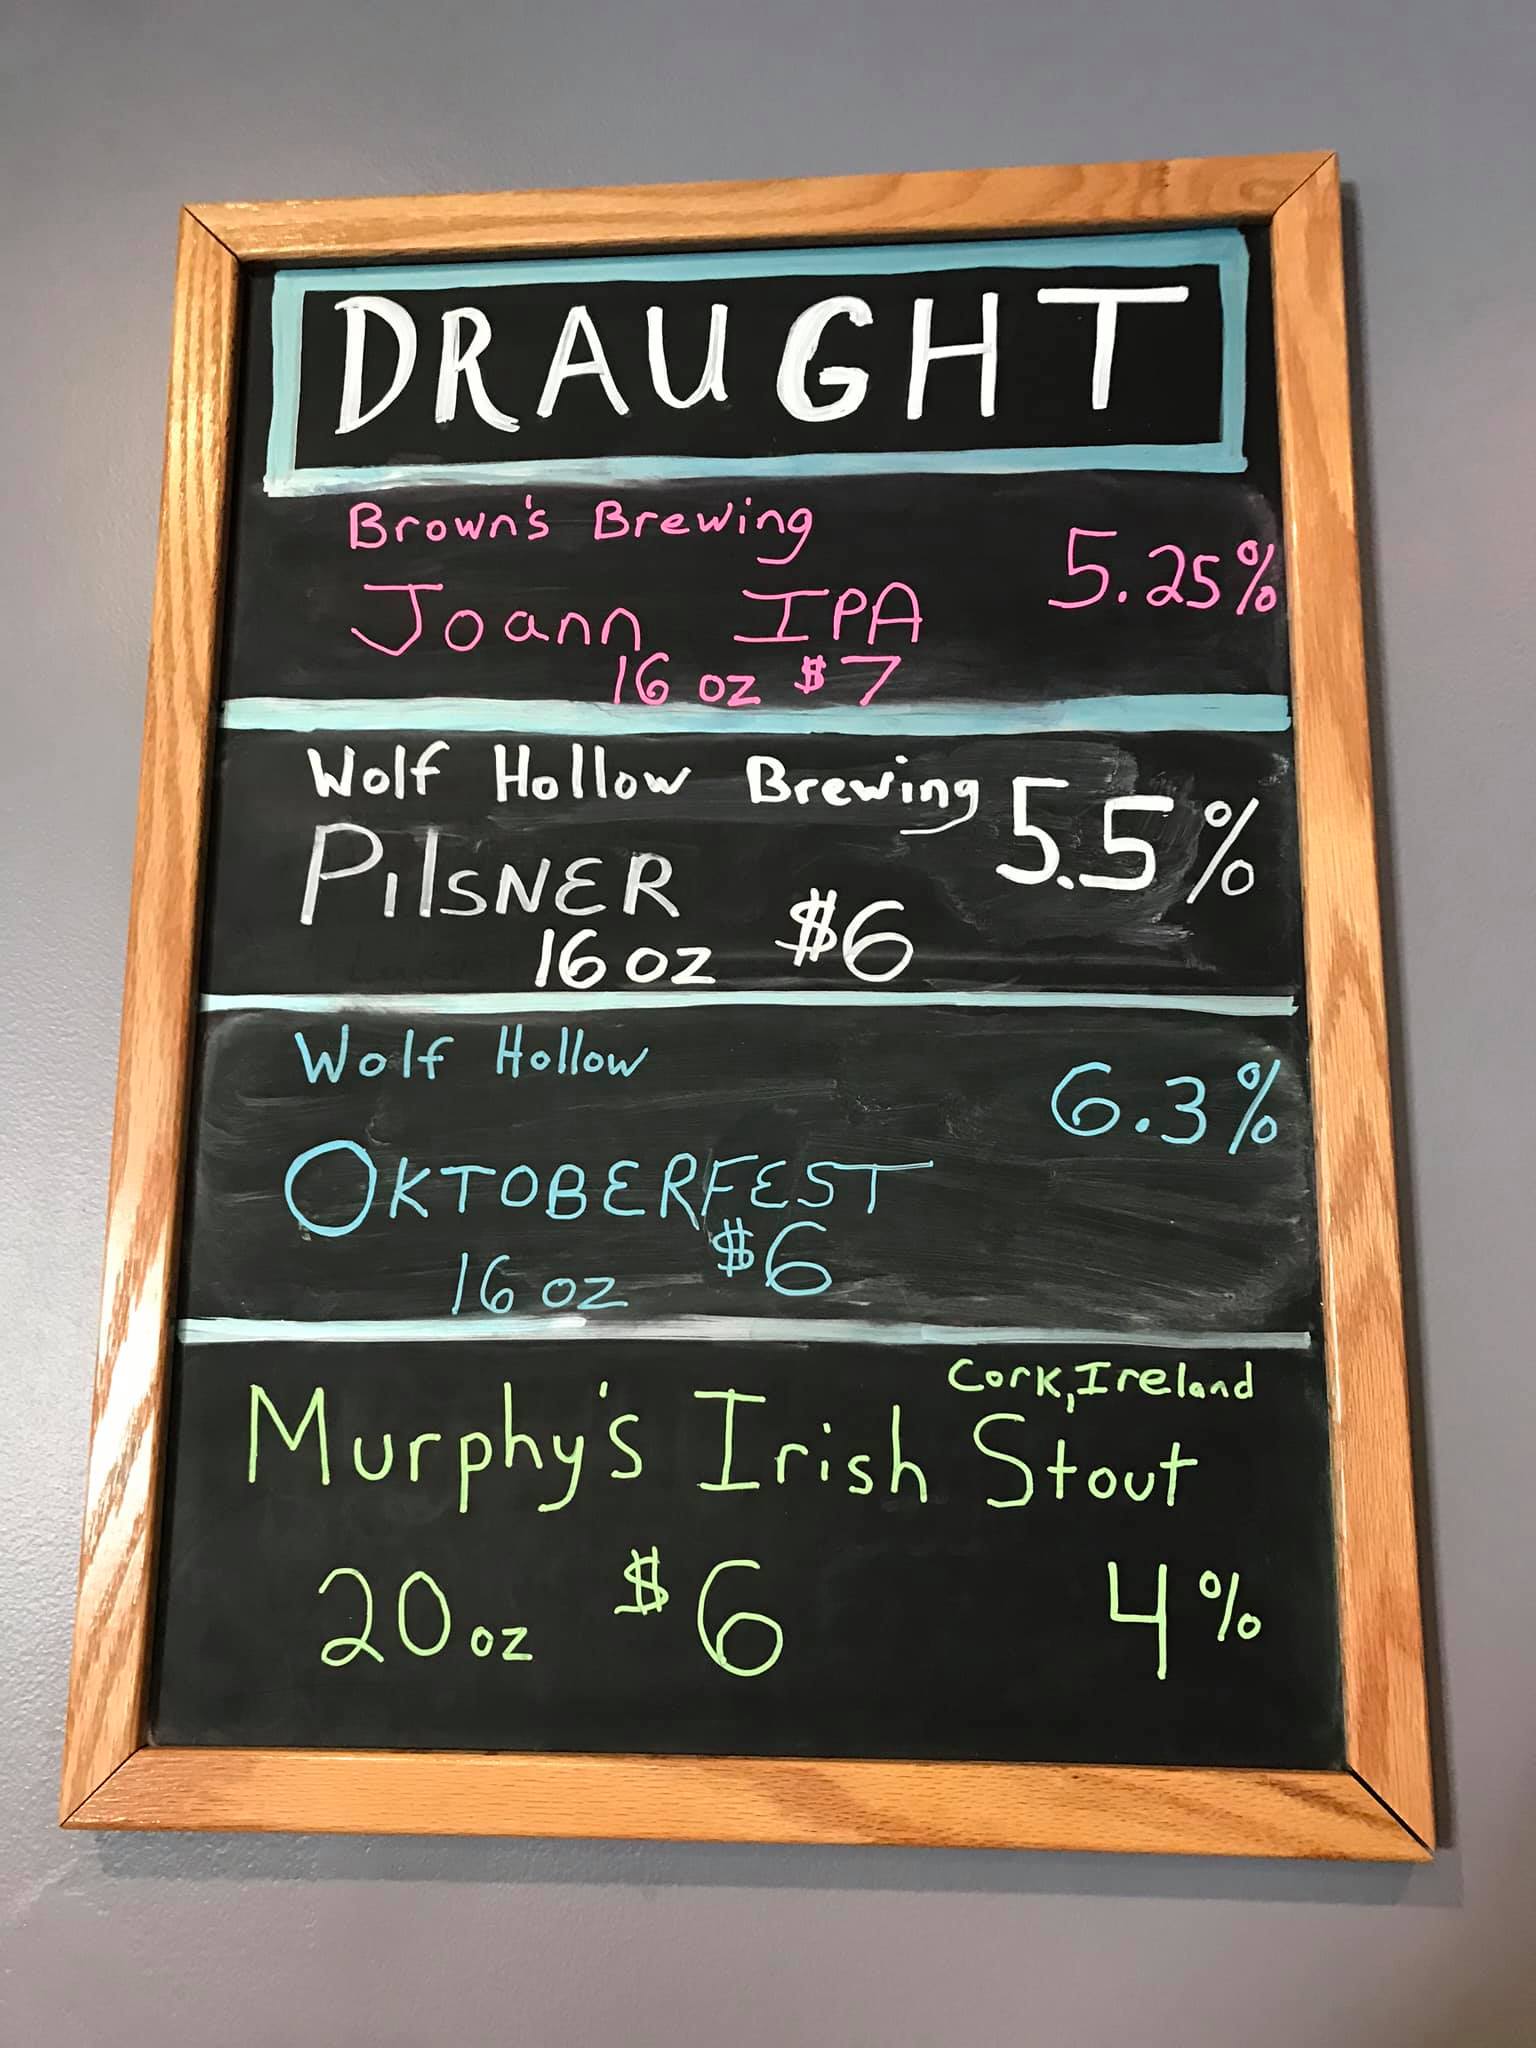 DRAUGHT
Brown's Brewing
Joann IPA 5.25%
16 oz $7
Wolf Hollow Brewing 5.5%
PilsNER
16 oz $6
Wolf Hollow 6.3%
OKTOBERFEST
16 oz $6
Cork, Ireland
Murphy's Irish Stout
20 oz $6 4%